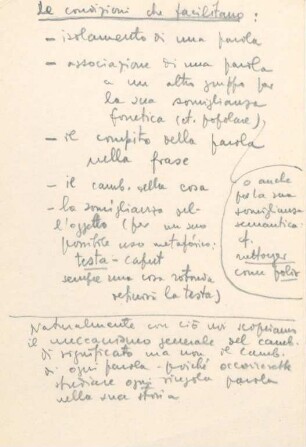 le condizioni che facilitano:
– isolamento di una parola
– associazione di una parola
a un altro gruppo per
la sua somiglianza
fonetica (et. popolare)
– il compito della parola
nella frase
– il camb. della cosa
– la somiglianza del-
l'oggetto (per un suo
possibile uso metaforico:
testa – caput
sempre una cosa rotonda
la testa)
o anche
per la sua
somiglianza
semantica
cf.
nettoyer
come polir
Naturalmente con ciò noi scopriamo
il meccanismo generale del camb.
di significato ma non il camb.
di ogni parola – poiché occorrerebbe
studiare ogni singola parola
nella sua storia